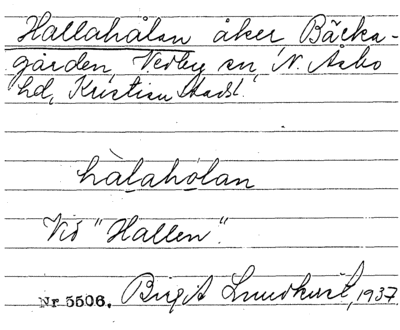 Hallahålan åker Bäcka-
gården, Vedby sn, N. Åsbo
hd, Kristianstads l.
hàlahòlan
Vid "Hallen".
Nr 5506. Birgit Lundkvist, 1937